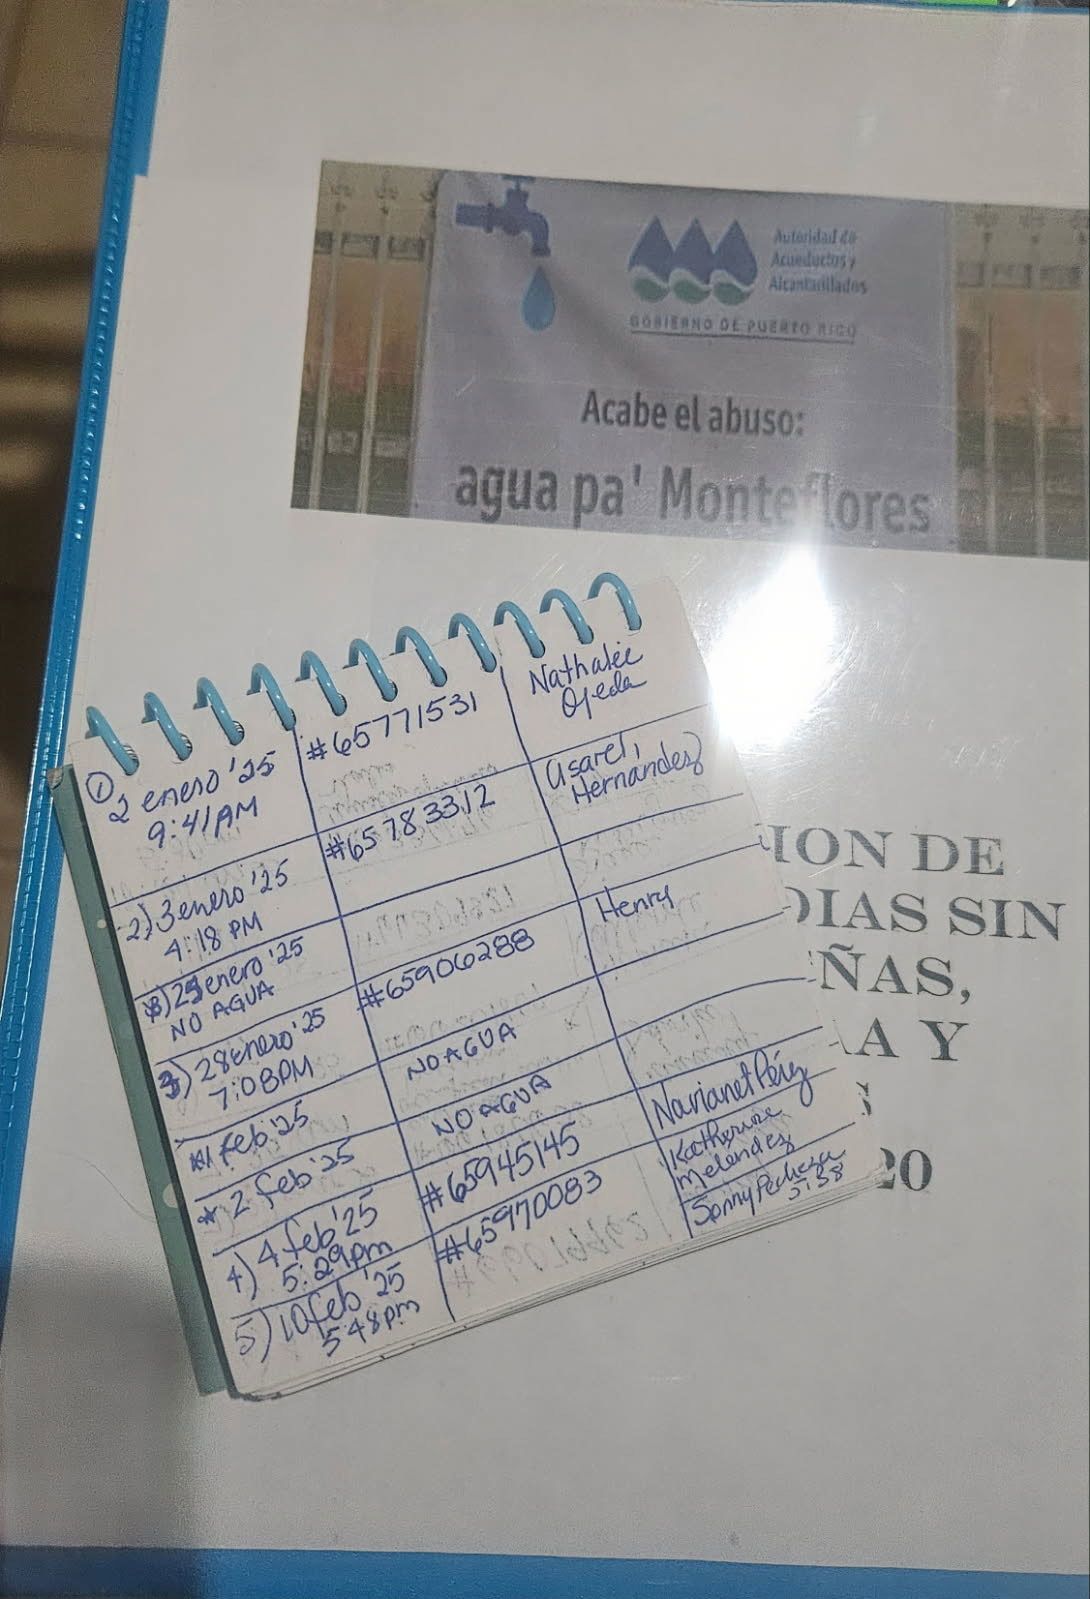 Autoridad de
Acueductos y
Alcantarillados
GOBIERNO DE PUERTO RICO
Acabe el abuso:
agua pa' Monteflores
① 2 enero '25 #65771531 Nathalie
9:41AM Ojeda
2) 3 enero '25 #65783312 Usarel,
4:18 PM Hernández
enero '25
NO AGUA
3) 28 enero '25 #65906288 Henry
7:08PM
1 feb '25 NO AGUA
* 2 feb '25 NO AGUA
4) 4 feb '25 #65945145 Narianet Pérez
5:29pm
5) 10 feb '25 #65970083 Katherine
5:48pm Melendez
Sonny Pacheco
5:58
ION DE
DIAS SIN
ÑAS,
A Y
S
20